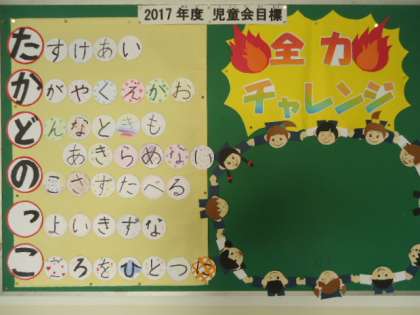 2017年度 児童会目標
たすけあい
かがやくえがお
どんなときも
あきらめない
のこさずたべる
っよいきずな
こころをひとつに
全力
チャレンジ